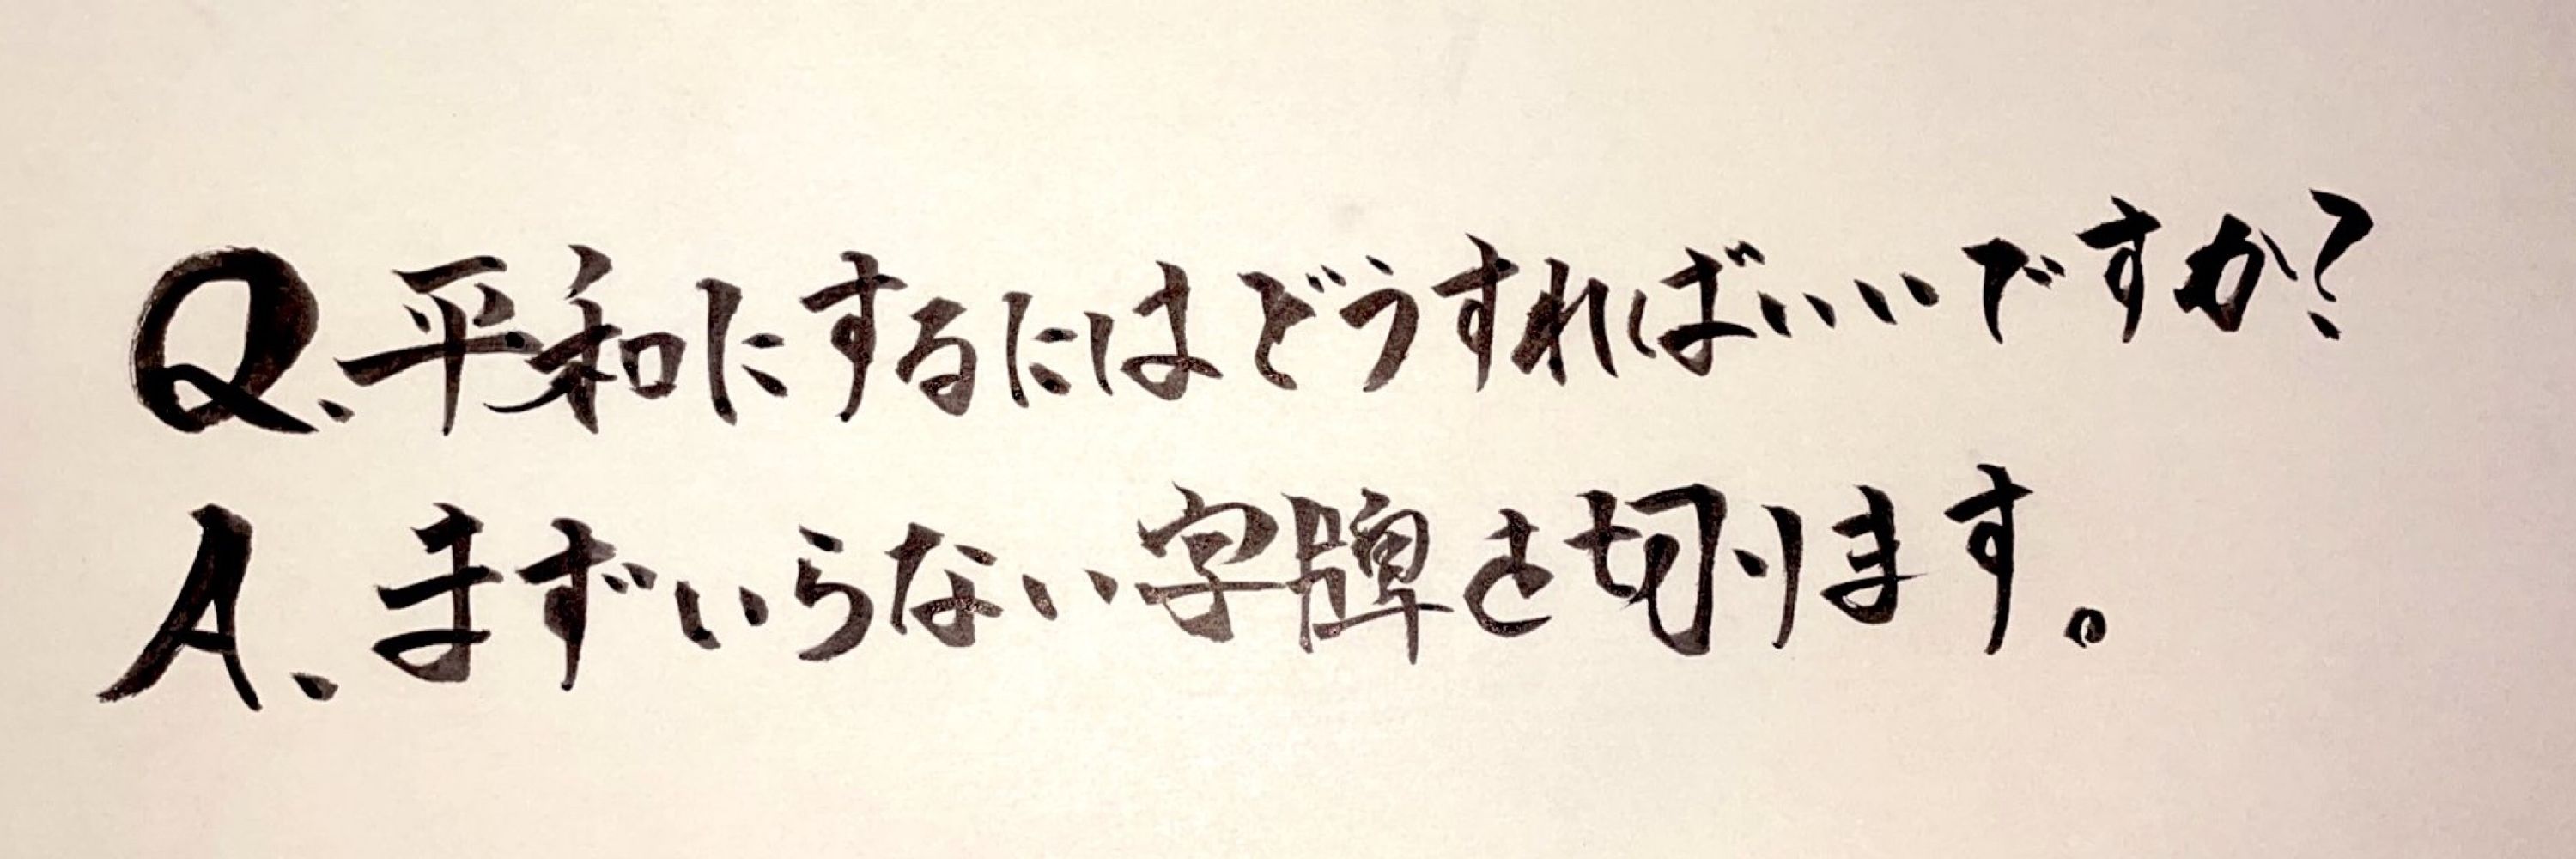 Q.平和にするにはどうすればいいですか?
A.まずいらない字牌を切ります。